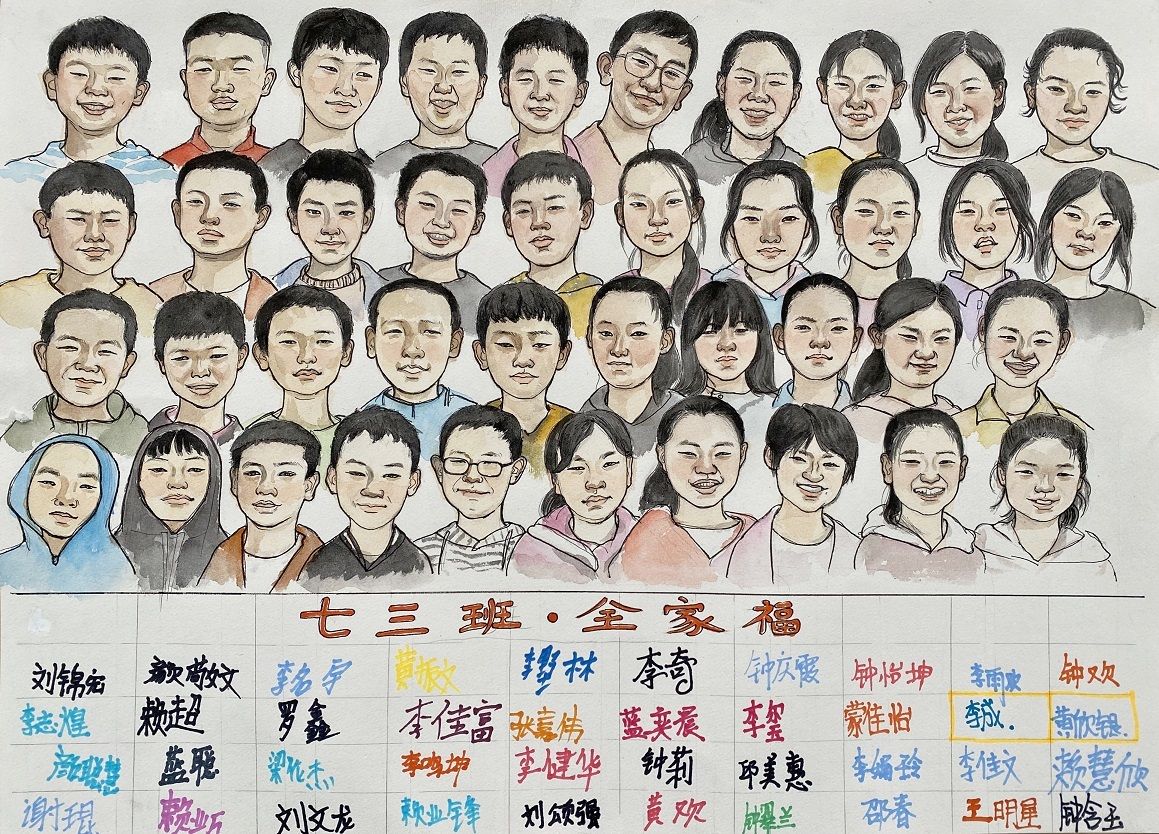 七三班·全家福
刘锦宏 李名宇 黄振文 林 李奇 钟庆霞 钟怡坤 钟欢
李志煌 赖超 罗鑫 李佳富 张嘉伟 蓝奕宸 李玺 蒙佳怡 李成. 黄欣银.
蓝聪 梁 杰 李鸣坤 李健华 钟莉 邱美惠 李娟玲 李佳文 赖慧欣
谢琨 赖业万 刘文龙 赖业锋 刘颂强 黄欢 邵春 王明星 钟含玉